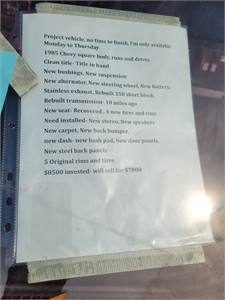 Project vehicle, no time to finish, I'm only available
Monday to Thursday
1985 Chevy square body, runs and drives
Clean title- Title in hand
New bushings, New suspension
New alternator, New steering wheel, New Battery,
Stainless exhaust, Rebuilt 350 short block,
Rebuilt transmission- 10 miles ago
New seat- Recovered , 4 new tires and rims
Need installed- New stereo, New speakers
New carpet, New back bumper,
new dash- new dash pad, New door panels,
New steel back panels
5 Original rims and tires
$8500 invested- will sell for $7000